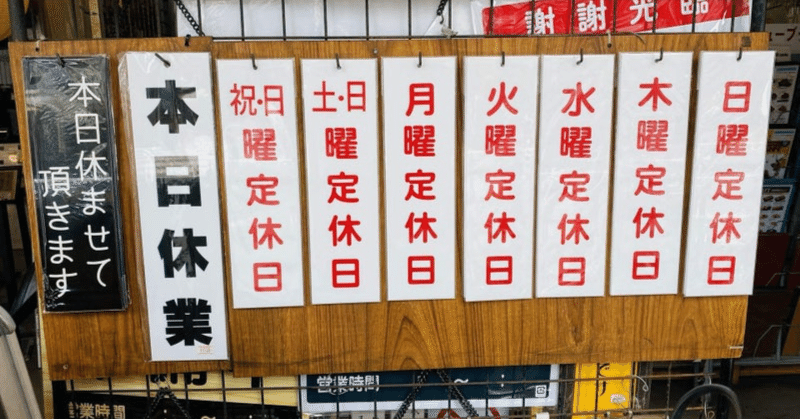 謝謝光臨
本日休ませて
頂きます
本日休業
祝・日曜定休日
土・日曜定休日
月曜定休日
火曜定休日
水曜定休日
木曜定休日
日曜定休日
業時間
営業時間 ~ :